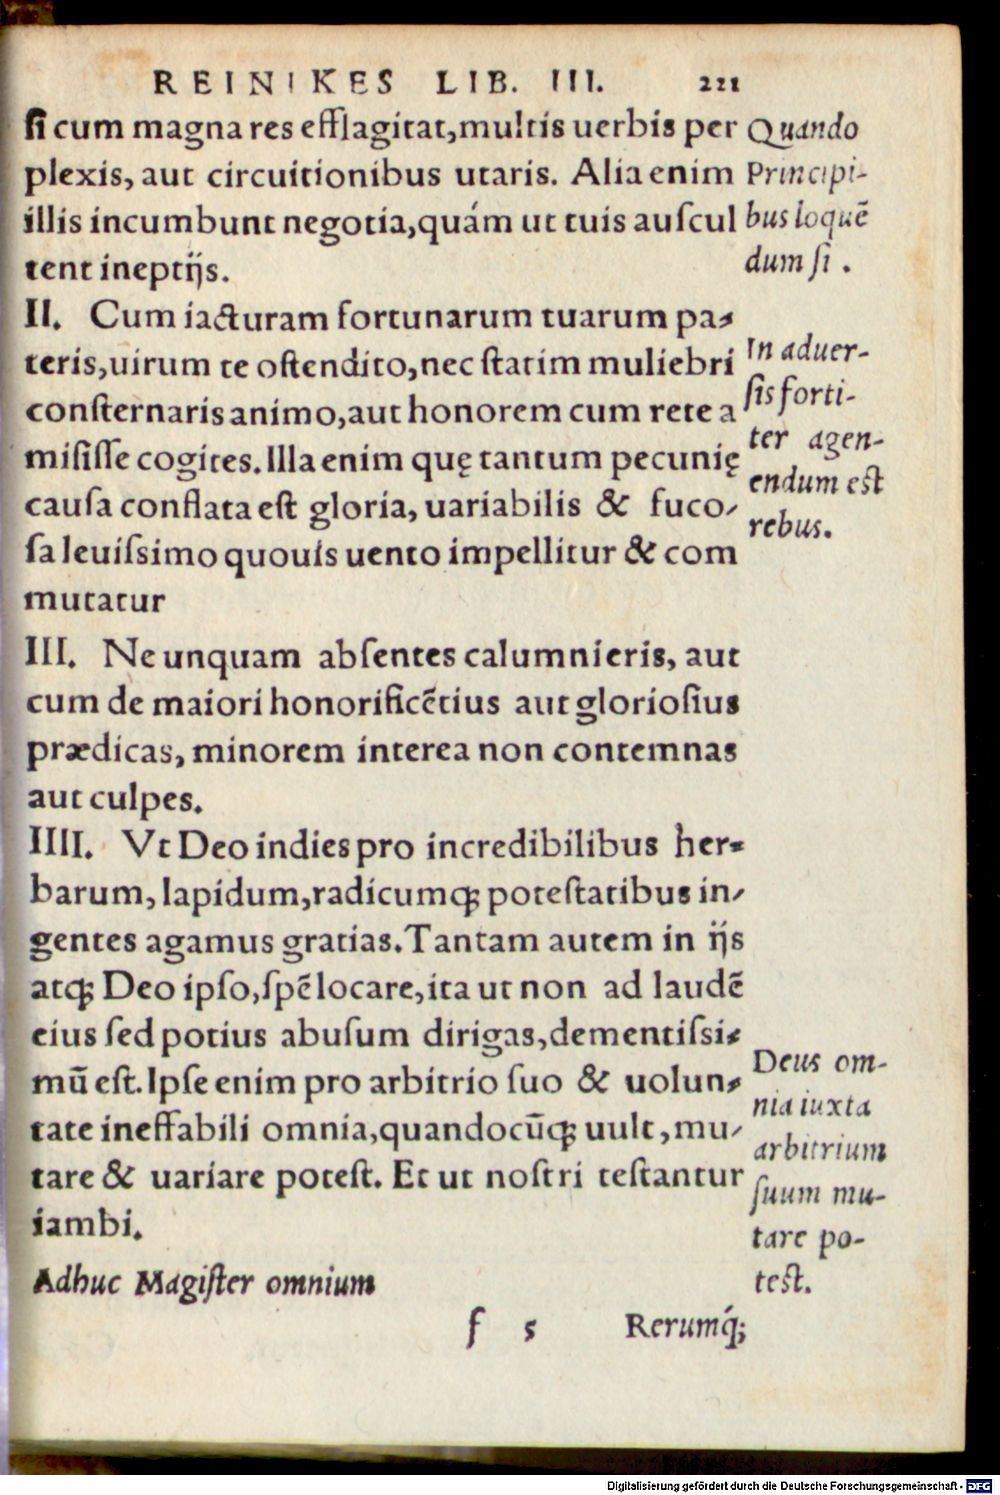 REINIKES LIB. III. 221
ſi cum magna res efflagitat,multis uerbis per
plexis, aut circuitionibus utaris. Alia enim
illis incumbunt negotia,quám ut tuis auſcul
tent ineptijs.
II. Cum iacturam fortunarum tuarum pa-
teris,uirum te oſtendito,nec ſtatim muliebri
conſternaris animo,aut honorem cum rete a
miſiſſe cogites. Illa enim quę tantum pecunię
cauſa conflata eſt gloria, uariabilis & fuco-
ſa leuiſsimo quouis uento impellitur & com
mutatur
III. Ne unquam abſentes calumnieris, aut
cum de maiori honorificẽtius aut glorioſius
prædicas, minorem interea non contemnas
aut culpes.
IIII. Vt Deo indies pro incredibilibus her-
barum, lapidum,radicumq; poteſtatibus in-
gentes agamus gratias. Tantam autem in ijs
atq; Deo ipſo,ſpẽ locare,ita ut non ad laudẽ
eius ſed potius abuſum dirigas,dementiſsi-
mũ eſt. Ipſe enim pro arbitrio ſuo & uolun-
tate ineffabili omnia,quandocũq; uult,mu-
tare & uariare poteſt. Et ut noſtri teſtantur
iambi.
Adhuc Magiſter omnium
f 5 Rerumq́;
Quando
Principi-
bus loquẽ
dum ſi .
In aduer-
ſis forti-
ter agen-
endum eſt
rebus.
Deus om-
nia iuxta
arbitrium
ſuum mu-
tare po-
teſt.
Digitalisierung gefördert durch die Deutsche Forschungsgemeinschaft - DFG